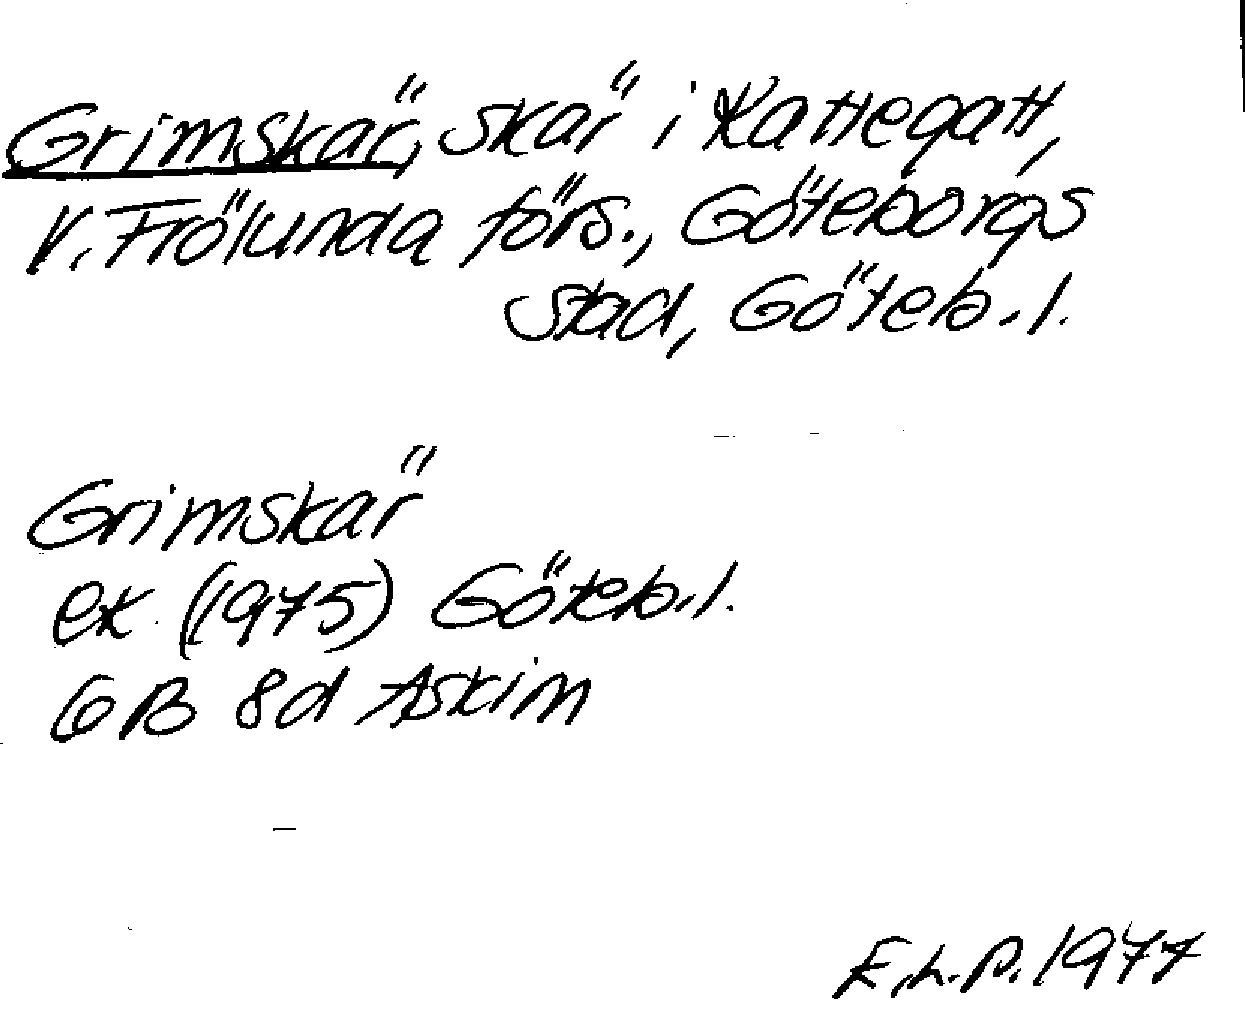 Grimskär, skär i Kattegatt,
V. Frölunda förs., Göteborgs
stad, Göteb. l.
Grimskär
ek. (1975) Göteb. l.
GB 8d Askim
F.L.P. 1977